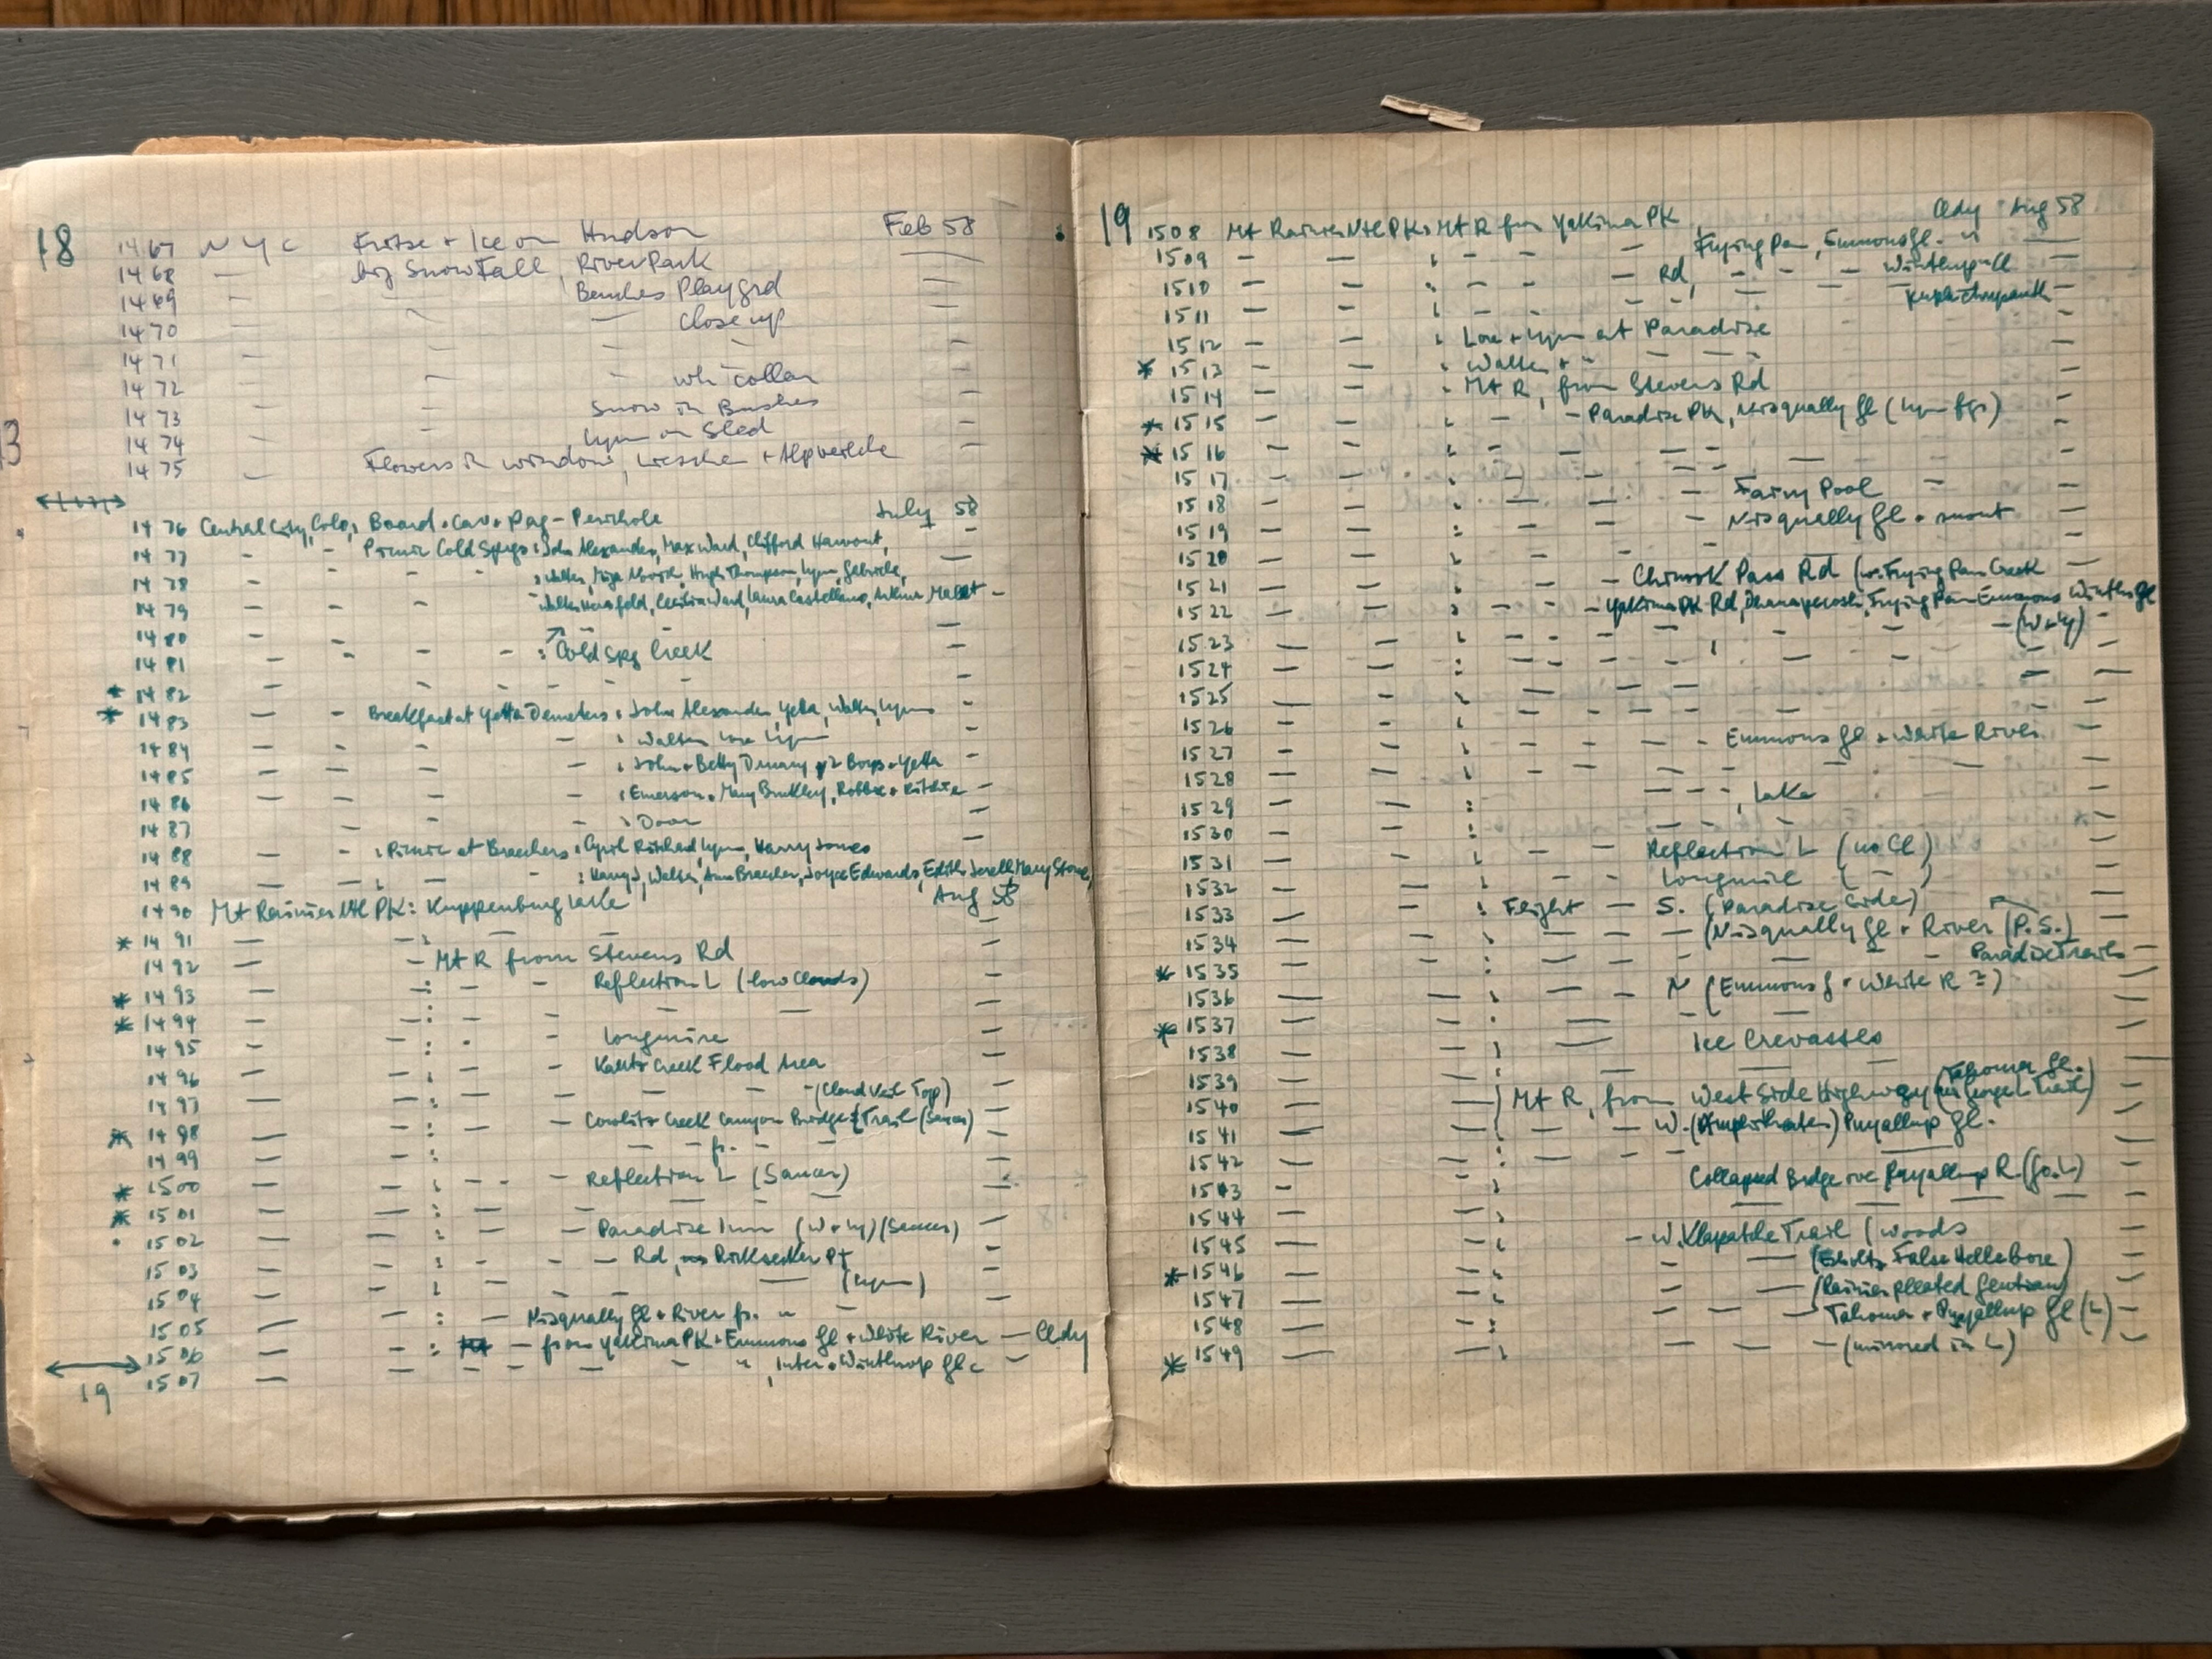 18
1467 NYC Fritze + Ice on Hudson Feb 58
1468 — big Snow Fall, River Park —
1469 — Benches Playgrd —
1470 — — — Close up —
1471 — — — — —
1472 — — — wh. collar —
1473 — — Snow in Bushes —
1474 — — Lynn on Sled —
1475 — Flowers in window, + Alpveilche —
1476 Central City, Colo, Board + Cav + Pag - Perichole July 58
1477 — — Picnic Cold Spgs: John Alexander, Max Ward, Clifford Harvuot,
1478 — — — — : Walter, Hugh Thompson, Lynn, Gabriele,
1479 — — — Walter Herzfeld, Cecilia Ward, Laura Castellano, Arthur —
1480 — — — — —
1481 — — — — : Cold Spg Creek —
* 1482 — — — — — — —
* 1483 — — Breakfast at Yetta Demeters: John Alexander, Yetta, Walter, Lynn
1484 — — — — : Walter Lore Lynn —
1485 — — — — : John + Betty + 2 Boys + Yetta
1486 — — — — : Emerson + Mary Buckley, Robbie + Ritchie —
1487 — — — : Door —
1488 — — : Picnic at Braechers: Cyril Ritchard, Lynn, Harry Jones
1489 — — : — — : Harry J, Walter, Ann Braecher, Joyce Edwards, Edith Jerell, Mary Stone,
1490 Mt Rainier Ntl PK: Lake Aug 58
* 1491 — — : —
1492 — — Mt R from Stevens Rd —
* 1493 — : — — Reflection L (low Clouds) —
* 1494 — : — — — — —
1495 — : — — Longmire —
1496 — : — — Kautz Creek Flood Area —
1497 — : — — — — — (Cloud Veil Top) —
* 1498 — : — — Cowlitz Creek Canyon Bridge + Trail (Saucer) —
1499 — : — — fr. — —
* 1500 — : — — Reflection L (Saucer) —
* 1501 — — : — — — — —
1502 — : — — Paradise Inn (W + Ly) (Saucer) —
1503 — : — — Rd, Ricksecker Pt —
1504 — : — — — (Lynn) —
1505 — — : — Nisqually Gl + River fr. " —
1506 — — : — from Yakima PK + Emmons Gl + White River — Cldy
1507 — — — — — " , Inter + Winthrop Gl —
19
19
1508 Mt Rainier Ntl PK: Mt R from Yakima PK Cldy Aug 58
1509 — — : — — — Frying Pan, Emmons Gl. " —
1510 — — : — — Rd, — — — Winthrop Gl
1511 — — : — — — — —
1512 — — : Lore + Lynn at Paradise —
* 1513 — — : Walter + " — — —
1514 — — : Mt R, from Stevens Rd —
* 1515 — — : — — Paradise PK, Nisqually Gl (Lynn fgr) —
* 1516 — — : — — — — — —
1517 — — : — — — — —
1518 — — : — — — Fairy Pool — —
1519 — — : — — — Nisqually Gl + snout —
1520 — — : — — — —
1521 — — : — — Chinook Pass Rd (w. Frying Pan Creek
1522 — — : — — Yakima PK Rd, Frying Pan Emmons Winthr Gl
1523 — — : — — — — — — (W + Ly) —
1524 — — : — — — — , — — —
1525 — — : — — — — — —
1526 — — : — — — — — —
1527 — — : — — — — Emmons Gl + White River —
1528 — — : — — — — — —
1529 — — : — — — , Lake —
1530 — — : — — — —
1531 — — : — — Reflection L (no Cl) —
1532 — — : — — Longmire ( — ) —
1533 — — : Flight — S. (Paradise Side) —
1534 — — : — — — (Nisqually Gl + River (P.S.) —
* 1535 — — : — — — — — Paradise Trails —
1536 — — : — — N (Emmons G + White R ?) —
* 1537 — — : — — — —
1538 — — : — Ice Crevasses —
1539 — — : — — — Tahoma Gl. —
1540 — — ) Mt R, from West Side Highway ( George L Trail) —
1541 — — : — — — W. (Amphitheater) Puyallup Gl. —
1542 — — : — — — — —
1543 — — : Collapsed Bridge ove Puyallup R (Go. L) —
1544 — — : — — — —
1545 — — : — W. Klapatche Trail (woods —
* 1546 — — : — — (Eschsltz False Hellebore) —
1547 — — : — — (Rainier pleated Gentian) —
1548 — — : — — — Tahoma + Puyallup Gl (L) —
* 1549 — — : — — — (mirrored in L) —